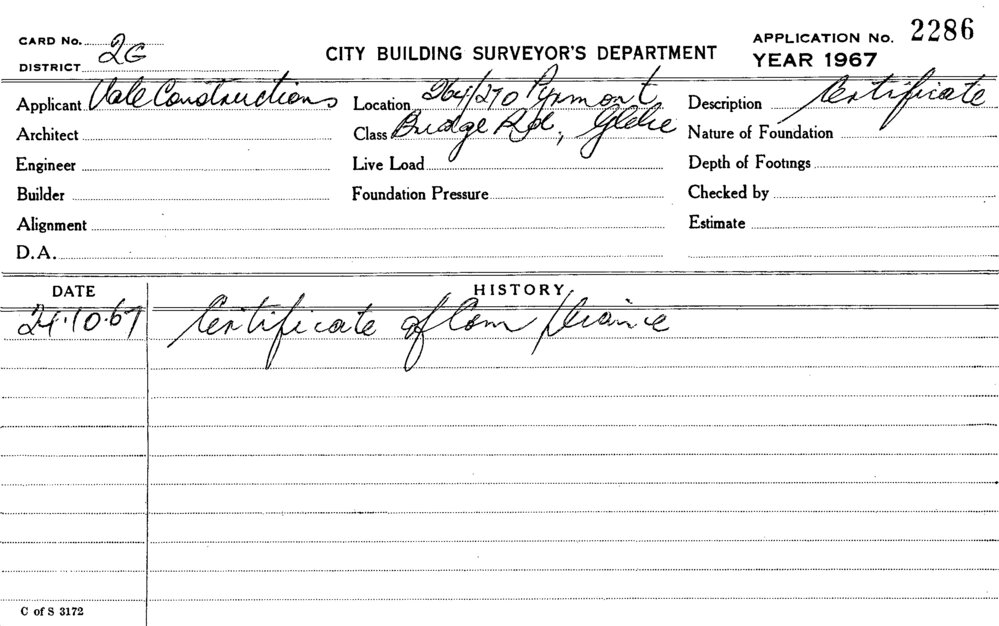 CARD No. 2G
DISTRICT
CITY BUILDING SURVEYOR'S DEPARTMENT
APPLICATION No. 2286
YEAR 1967
Applicant Vale Constructions Location 264/270 Pyrmont Description Certificate
Architect Class Bridge Rd., Glebe Nature of Foundation
Engineer Live Load Depth of Footings
Builder Foundation Pressure Checked by
Alignment Estimate
D.A.
DATE HISTORY
24.10.67 Certificate of Compliance
C of S 3172